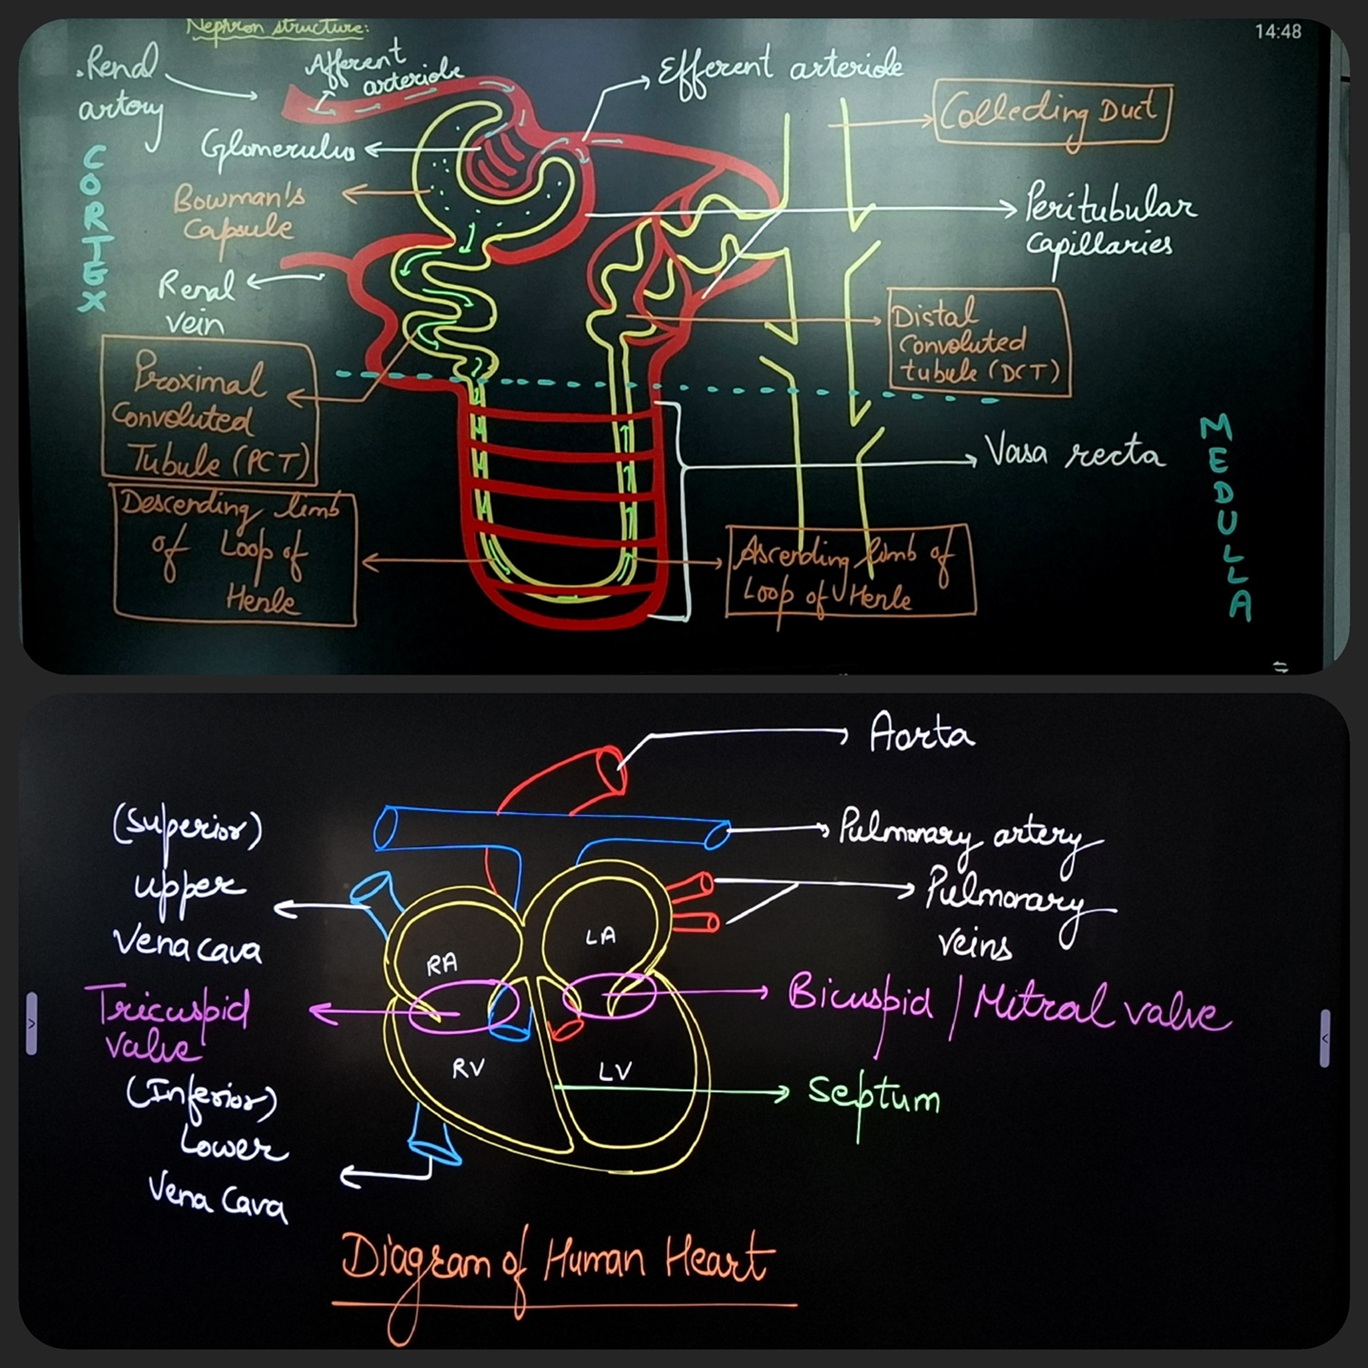 Nephron structure:
14:48
Renal
artory
Afferent
arteriole
Efferent arteriole
Collecting Duct
Glomerulus
CORTEX
Bowman's
Capsule
Peritubular
Capillaries
Renal
vein
Distal
Convoluted
tubule (DCT)
Proximal
Convoluted
Tubule (PCT)
Vasa recta
MEDULLA
Descending limb
of Loop of
Henle
Ascending limb of
Loop of Henle
Aorta
(Superior)
upper
Vena cava
Pulmonary artery
Pulmonary
veins
RA
LA
Tricuspid
valve
Bicuspid / Mitral valve
RV
LV
Septum
(Inferior)
Lower
Vena Cava
Diagram of Human Heart